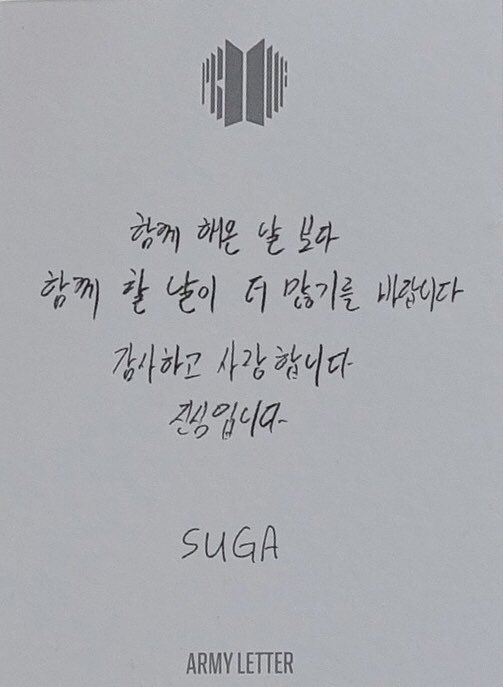 함께 해온 날 보다
함께 할 날이 더 많기를 바랍니다
감사하고 사랑합니다
진심입니다
SUGA
ARMY LETTER